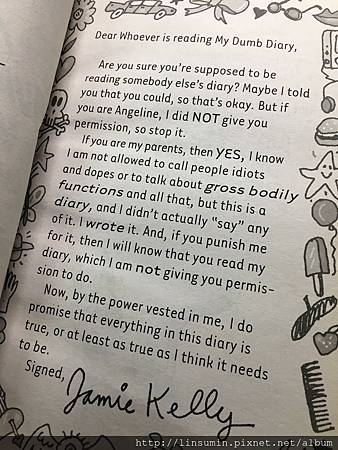 Dear Whoever is reading My Dumb Diary,
Are you sure you're supposed to be
reading somebody else's diary? Maybe I told
you that you could, so that's okay. But if
you are Angeline, I did NOT give you
permission, so stop it.
If you are my parents, then YES, I know
I am not allowed to call people idiots
and dopes or to talk about gross bodily
functions and all that, but this is a
diary, and I didn't actually "say" any
of it. I wrote it. And, if you punish me
for it, then I will know that you read my
diary, which I am not giving you permis-
sion to do.
Now, by the power vested in me, I do
promise that everything in this diary is
true, or at least as true as I think it needs
to be.
Signed,
Jamie Kelly
http://linsumin.pixnet.net/album